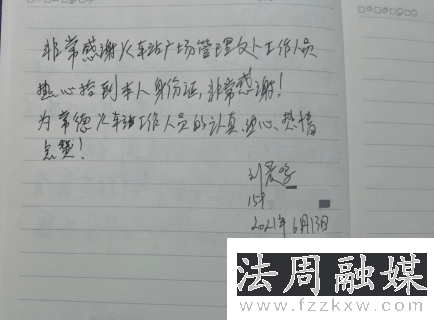 非常感谢火车站广场管理女人工作人员
热心捡到本人身份证,非常感谢!
为常德火车站工作人员的认真、热心、热情
点赞!
刘爱
159
2021年6月13日
法周融媒
www.fzzkxw.com